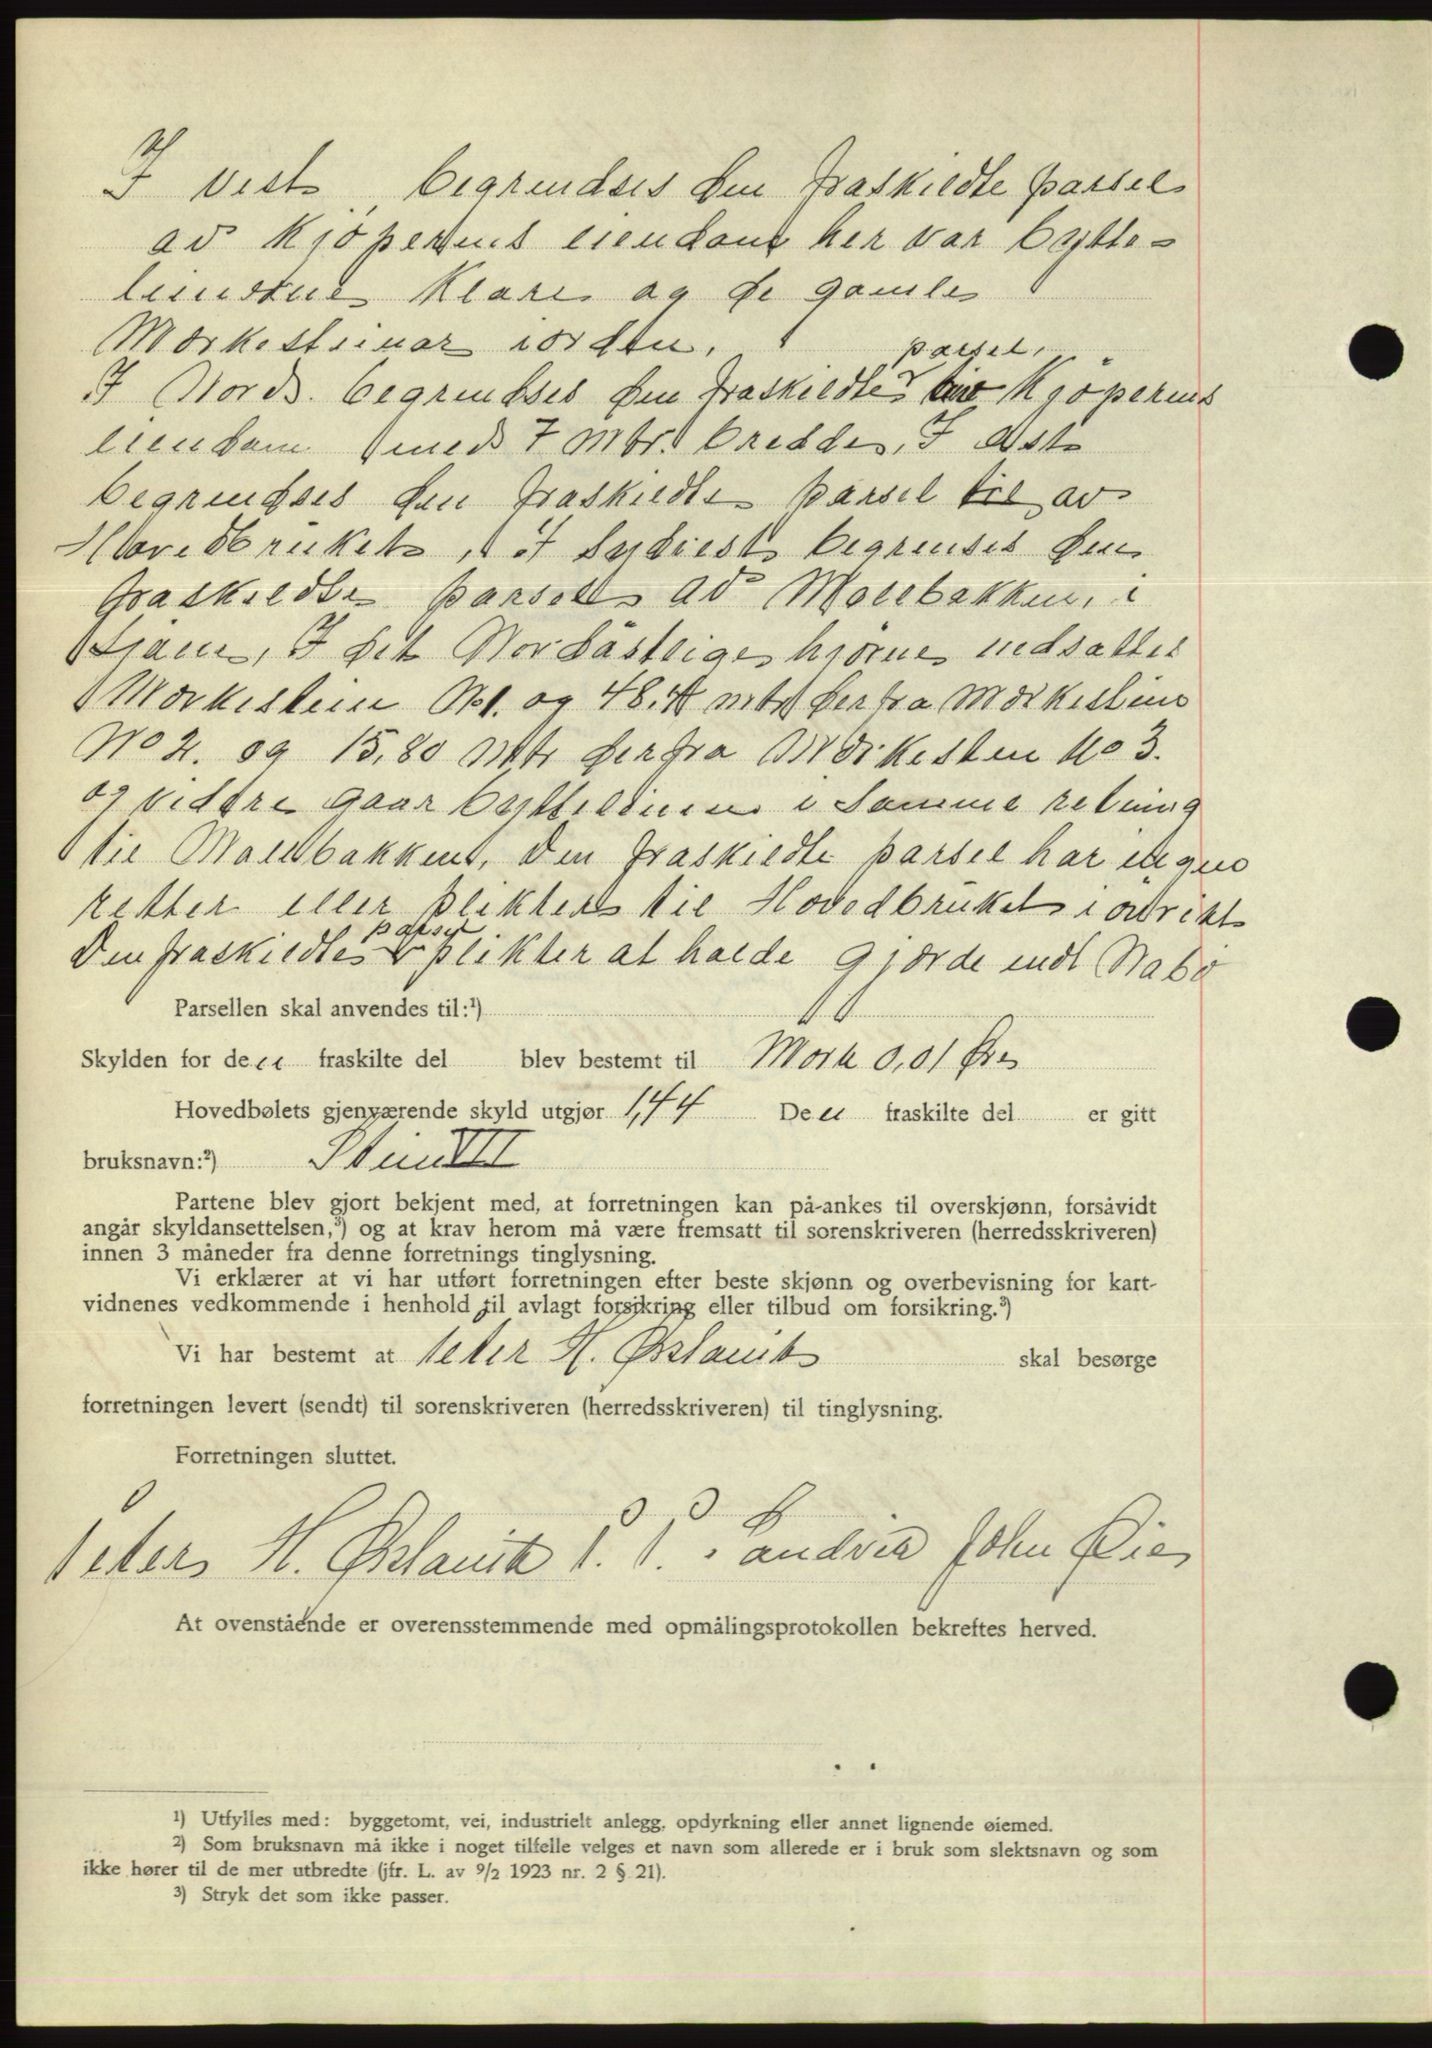 I vest begrendses den fraskildte parsel
av kjøperens eiendom her var bytte-
linierne klare og de gamle
Mærkesteinar i orden.
parsel.
I Nord. begrendses den fraskildte Kjöperens
eiendom med 7 mtr. bredde, I Øst
begrendses den fraskildte parsel til av
Hovedbruket, I Sydvest begrenses den
fraskildte parsel av Molebakken, i
Sjøen, I det Nordøstlige hjørne nedsattes
Mærkestein No1. og 48,4 mtr derfra Mærkestein
No 2. og 15,80 Mtr derfra Mærkesten No 3.
og videre gaar byttelinien i samme retning
til Molebakken, Den fraskildte parsel har ingen
retter eller plikter til Hovedbruket
parsel
Den fraskildte plikter at holde gjærde mot Nabo
Parsellen skal anvendes til:¹)
Skylden for den fraskilte del blev bestemt til Mørk 0,01 Øre
Hovedbølets gjenværende skyld utgjør 1,44 Den fraskilte del er gitt
bruksnavn:²) Stein VII
Partene blev gjort bekjent med, at forretningen kan på-ankes til overskjønn, forsåvidt
angår skyldansettelsen,³) og at krav herom må være fremsatt til sorenskriveren (herredsskriveren)
innen 3 måneder fra denne forretnings tinglysning.
Vi erklærer at vi har utført forretningen efter beste skjønn og overbevisning for kart-
vidnenes vedkommende i henhold til avlagt forsikring eller tilbud om forsikring.³)
Vi har bestemt at Peter H. Ørslavik skal besørge
forretningen levert (sendt) til sorenskriveren (herredsskriveren) til tinglysning.
Forretningen sluttet.
Peter H. Ørslavik P. P. Sandvik John Øie
At ovenstående er overensstemmende med opmålingsprotokollen bekreftes herved.
¹) Utfylles med: byggetomt, vei, industrielt anlegg, opdyrkning eller annet lignende øiemed.
²) Som bruksnavn må ikke i noget tilfelle velges et navn som allerede er i bruk som slektsnavn og som
ikke hører til de mer utbredte (jfr. L. av 9/2 1923 nr. 2 § 21).
³) Stryk det som ikke passer.